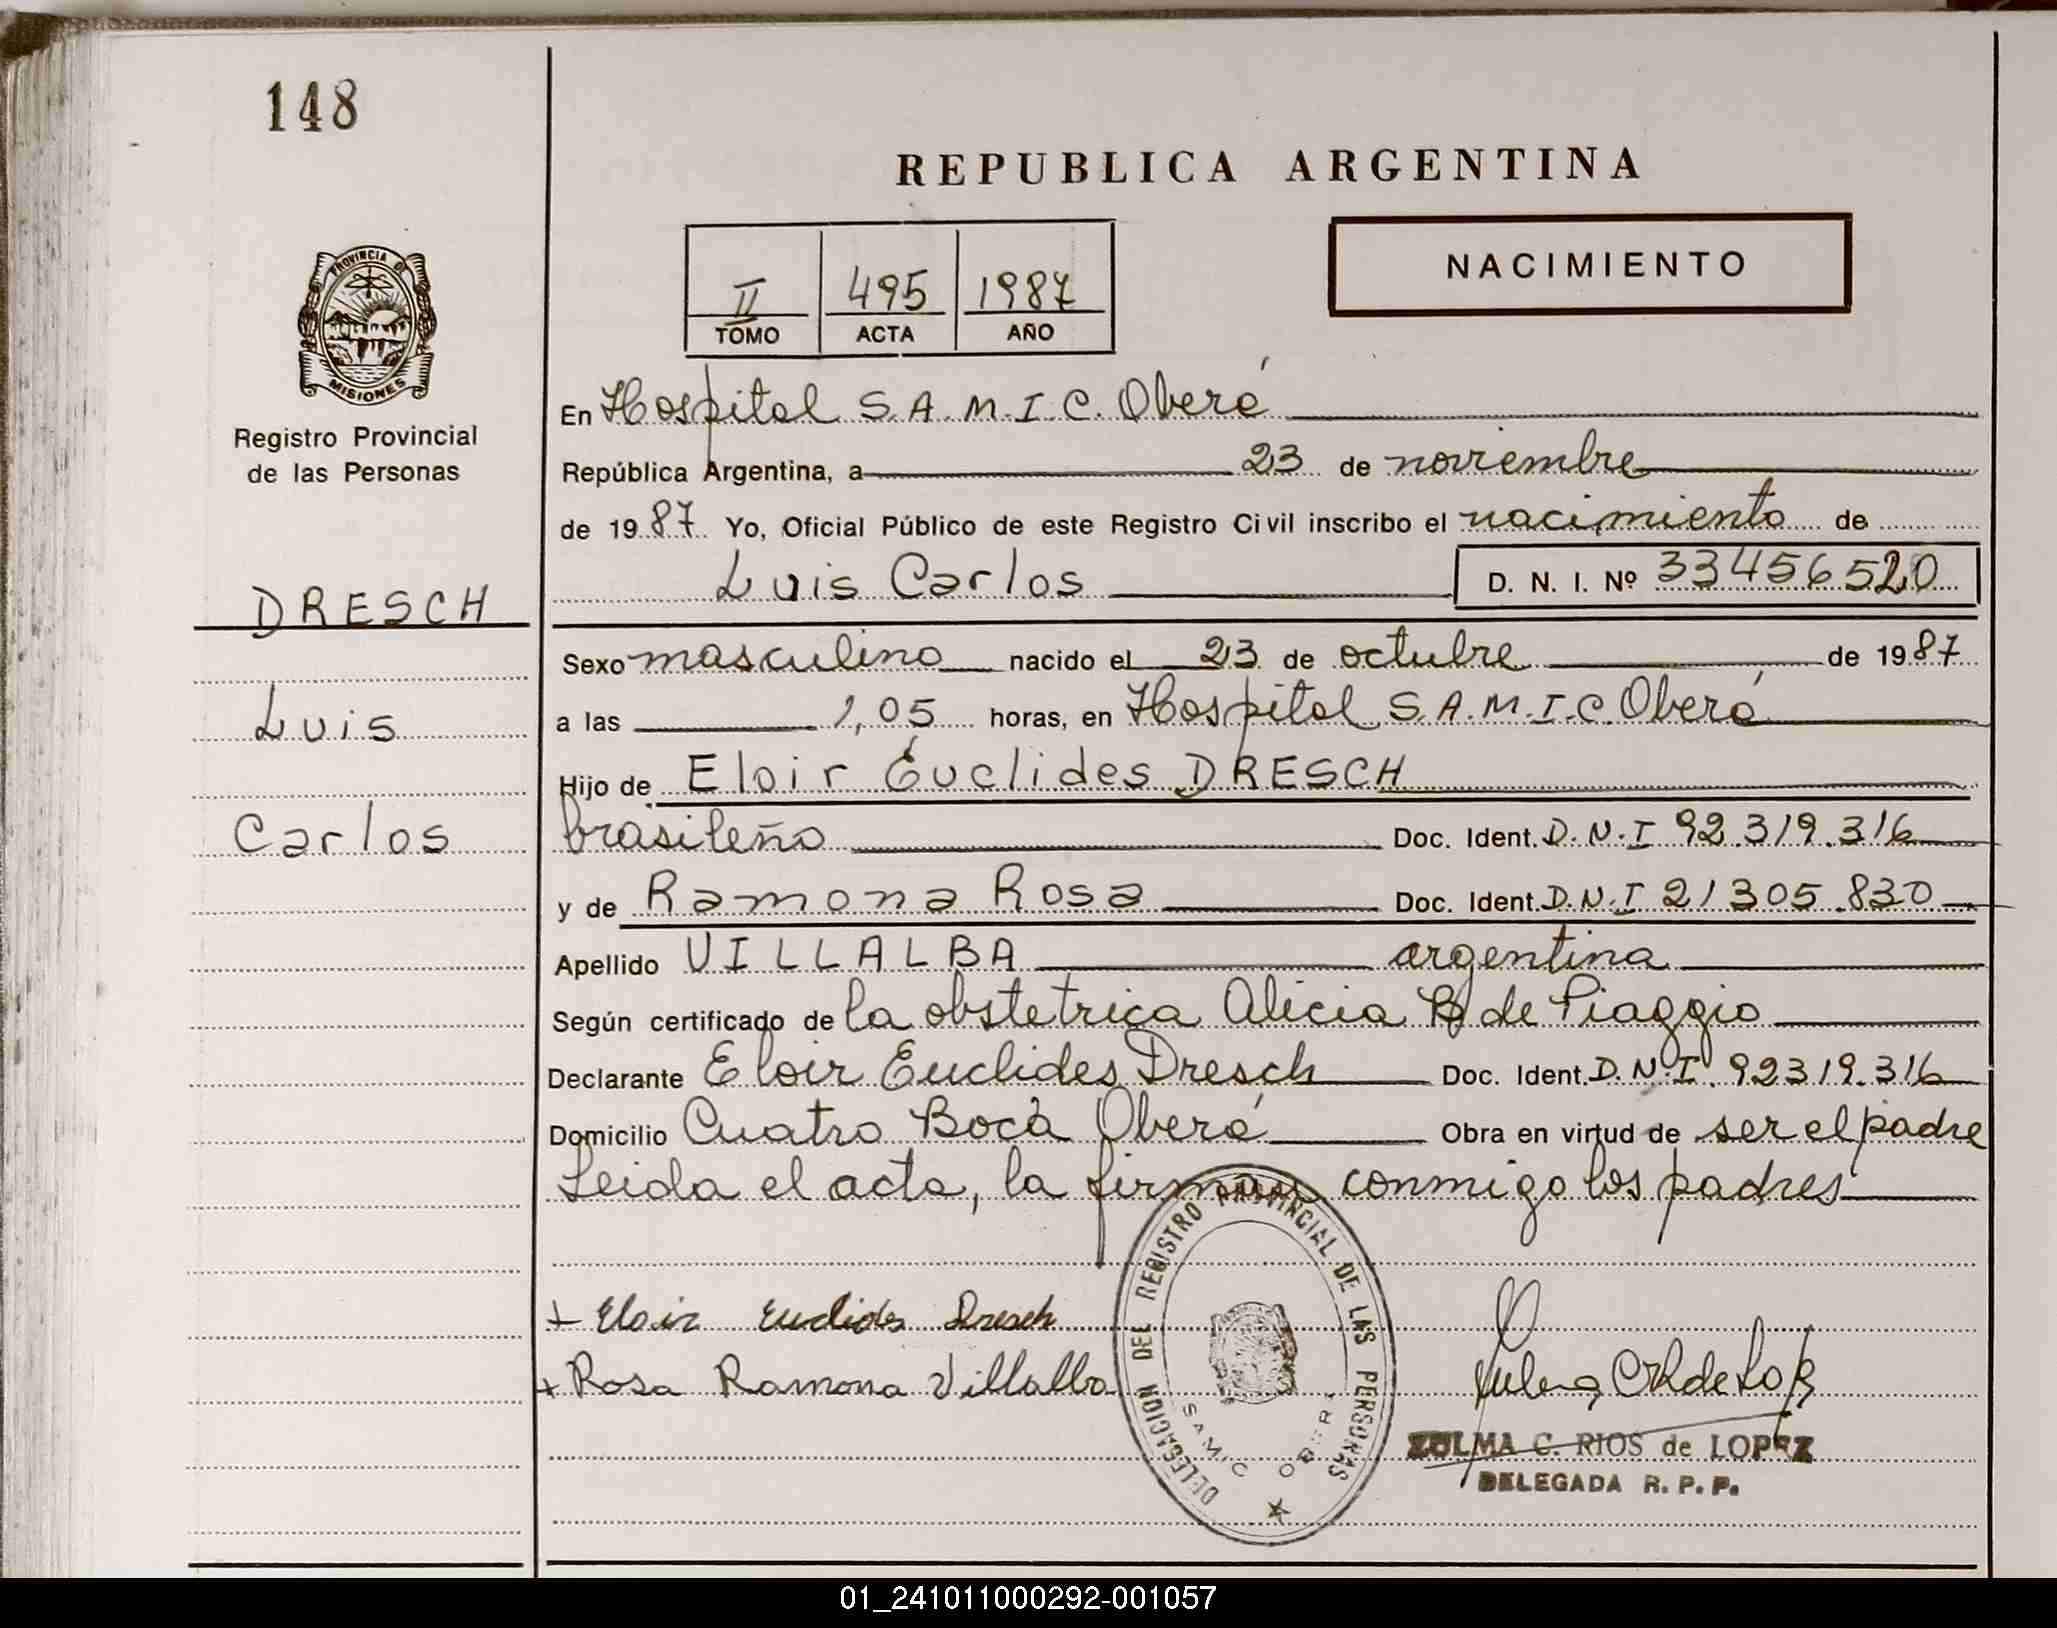 148
REPUBLICA ARGENTINA
NACIMIENTO
II 495 1987
TOMO ACTA AÑO
PROVINCIA DE
MISIONES
Registro Provincial
de las Personas
En Hospital S.A.M.I.C. Oberá
República Argentina, a 23 de noviembre
de 1987 Yo, Oficial Público de este Registro Civil inscribo el nacimiento de
Luis Carlos D. N. I. Nº 33456520
DRESCH
Luis
Carlos
Sexo masculino nacido el 23 de octubre de 1987
a las 1,05 horas, en Hospital S.A.M.I.C. Oberá
Hijo de Eloir Euclides DRESCH
brasileño Doc. Ident. D.N.I 92.319.316
y de Ramona Rosa Doc. Ident. D.N.I 21305.830
Apellido VILLALBA argentina
Según certificado de la obstetrica Alicia B de Piaggio
Declarante Eloir Euclides Dresch Doc. Ident. D.N.I. 92319.316
Domicilio Cuatro Boca Oberá Obra en virtud de ser el padre
Leida el acta, la firman conmigo los padres
+ Eloir Euclides Dresch
+ Rosa Ramona Villalba
DELEGACION DEL REGISTRO PROVINCIAL DE LAS PERSONAS
SAMIC OBERA
ZULMA C. RIOS de LOPEZ
DELEGADA R. P. P.
01_241011000292-001057